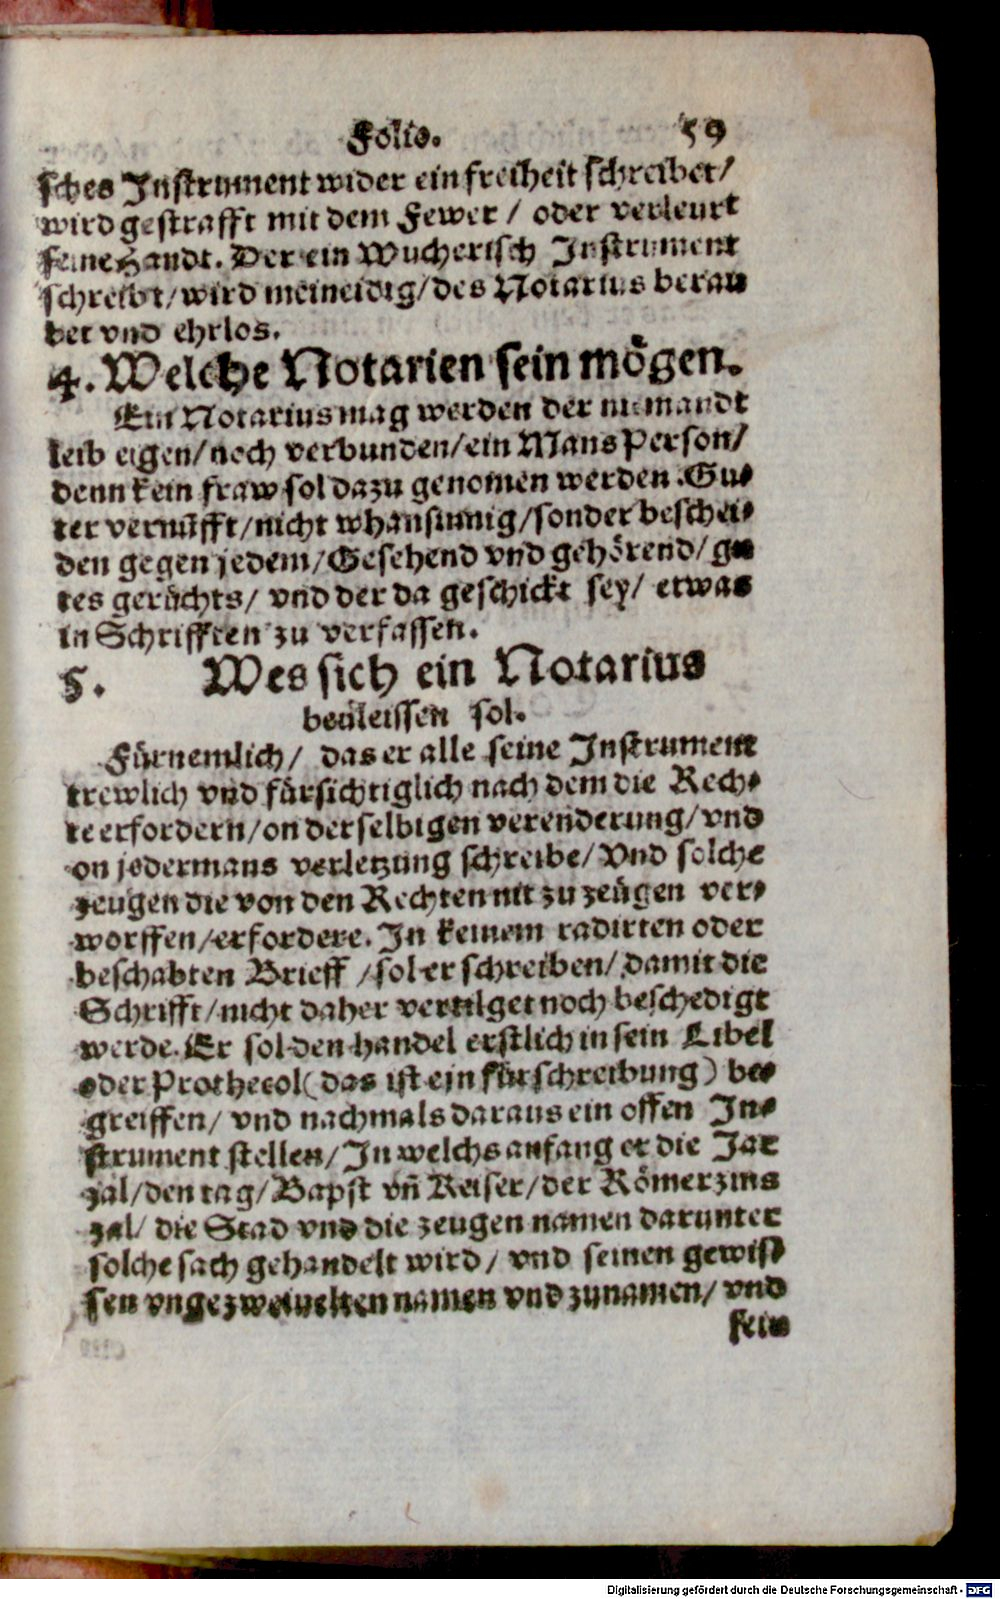 Folio. 59
sches Instrument wider ein freiheit schreibet/
wird gestrafft mit dem Fewer / oder verleurt
seine Handt. Der ein Wucherisch Instrument
schreibt/wird meineidig/des Notarius berau
bet vnd ehrlos.
4. Welche Notarien sein mögen.
Ein Notarius mag werden der niemandt
leib eigen/noch verbunden/ein Mans Person/
denn kein fraw sol dazu genomen werden. Gu-
ter vernūfft/nicht whansinnig/sonder beschei-
den gegen jedem/Gesehend vnd gehörend/gu
tes gerüchts/ vnd der da geschickt sey/ etwas
in Schrifften zu verfassen.
5. Wes sich ein Notarius
bevleissen sol.
Fürnemlich/ das er alle seine Instrument
trewlich vnd fürsichtiglich nach dem die Rech-
te erfordern/on derselbigen verenderung/vnd
on jedermans verletzung schreibe/Vnd solche
zeugen die von den Rechten nit zu zeügen ver-
worffen/erfordere. In keinem radirten oder
beschabten Brieff /sol er schreiben/damit die
Schrifft/nicht daher vertilget noch beschedigt
werde. Er sol den handel erstlich in sein Libel
oder Prothecol(das ist ein fürschreibung) be-
greiffen/ vnd nachmals daraus ein offen In-
strument stellen/In welchs anfang er die Jar
zal/den tag/Bapst vn̄ Keiser/der Römerzins
zal/ die Stad vnd die zeugen namen darunter
solche sach gehandelt wird/ vnd seinen gewis-
sen vngezweiuelten namen vnd zunamen/ vnd
sein
Digitalisierung gefördert durch die Deutsche Forschungsgemeinschaft - DFG